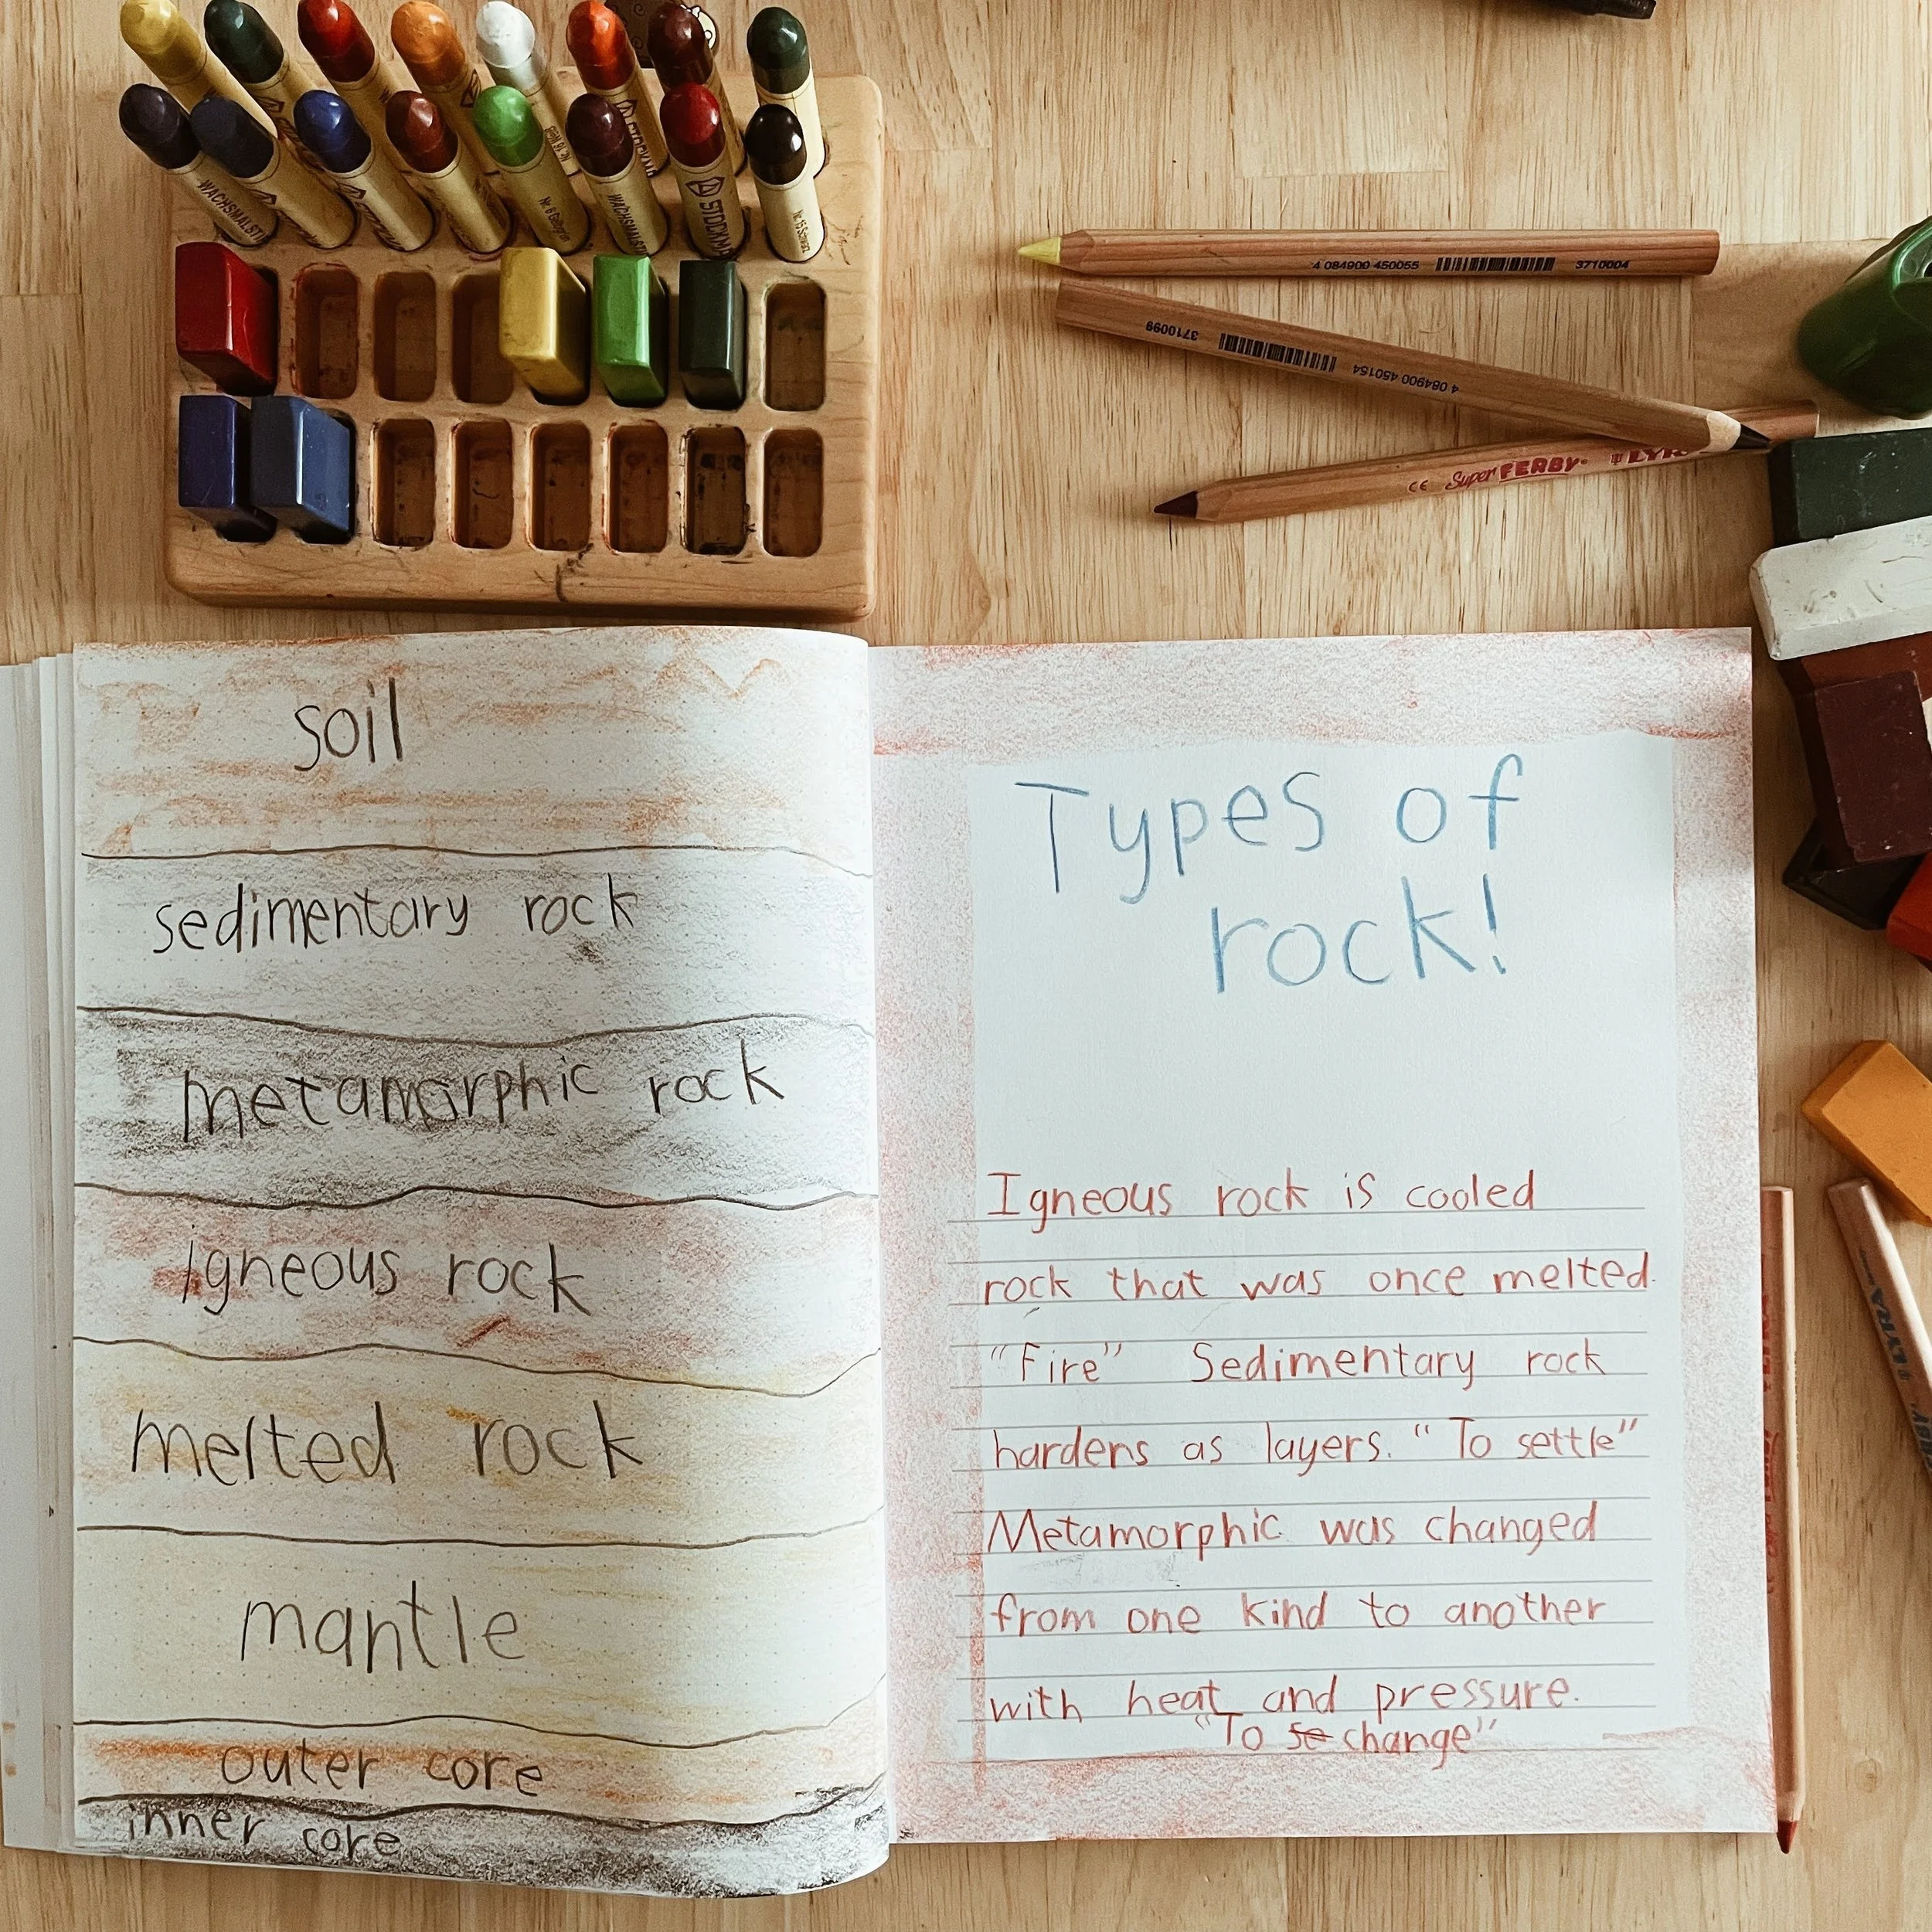 WACHSMALSTI
STOCKMA
WACHSMALSTI
STOCKMA
Nr. 15 Schwarz
4 084900 450055 3710004
3710099 4 084900 450154
CE Super FERBY LYRA
soil
sedimentary rock
metamorphic rock
igneous rock
melted rock
mantle
outer core
inner core
Types of
rock!
Igneous rock is cooled
rock that was once melted.
"Fire" Sedimentary rock
hardens as layers. "To settle"
Metamorphic was changed
from one kind to another
with heat and pressure.
"To se change"
LYRA